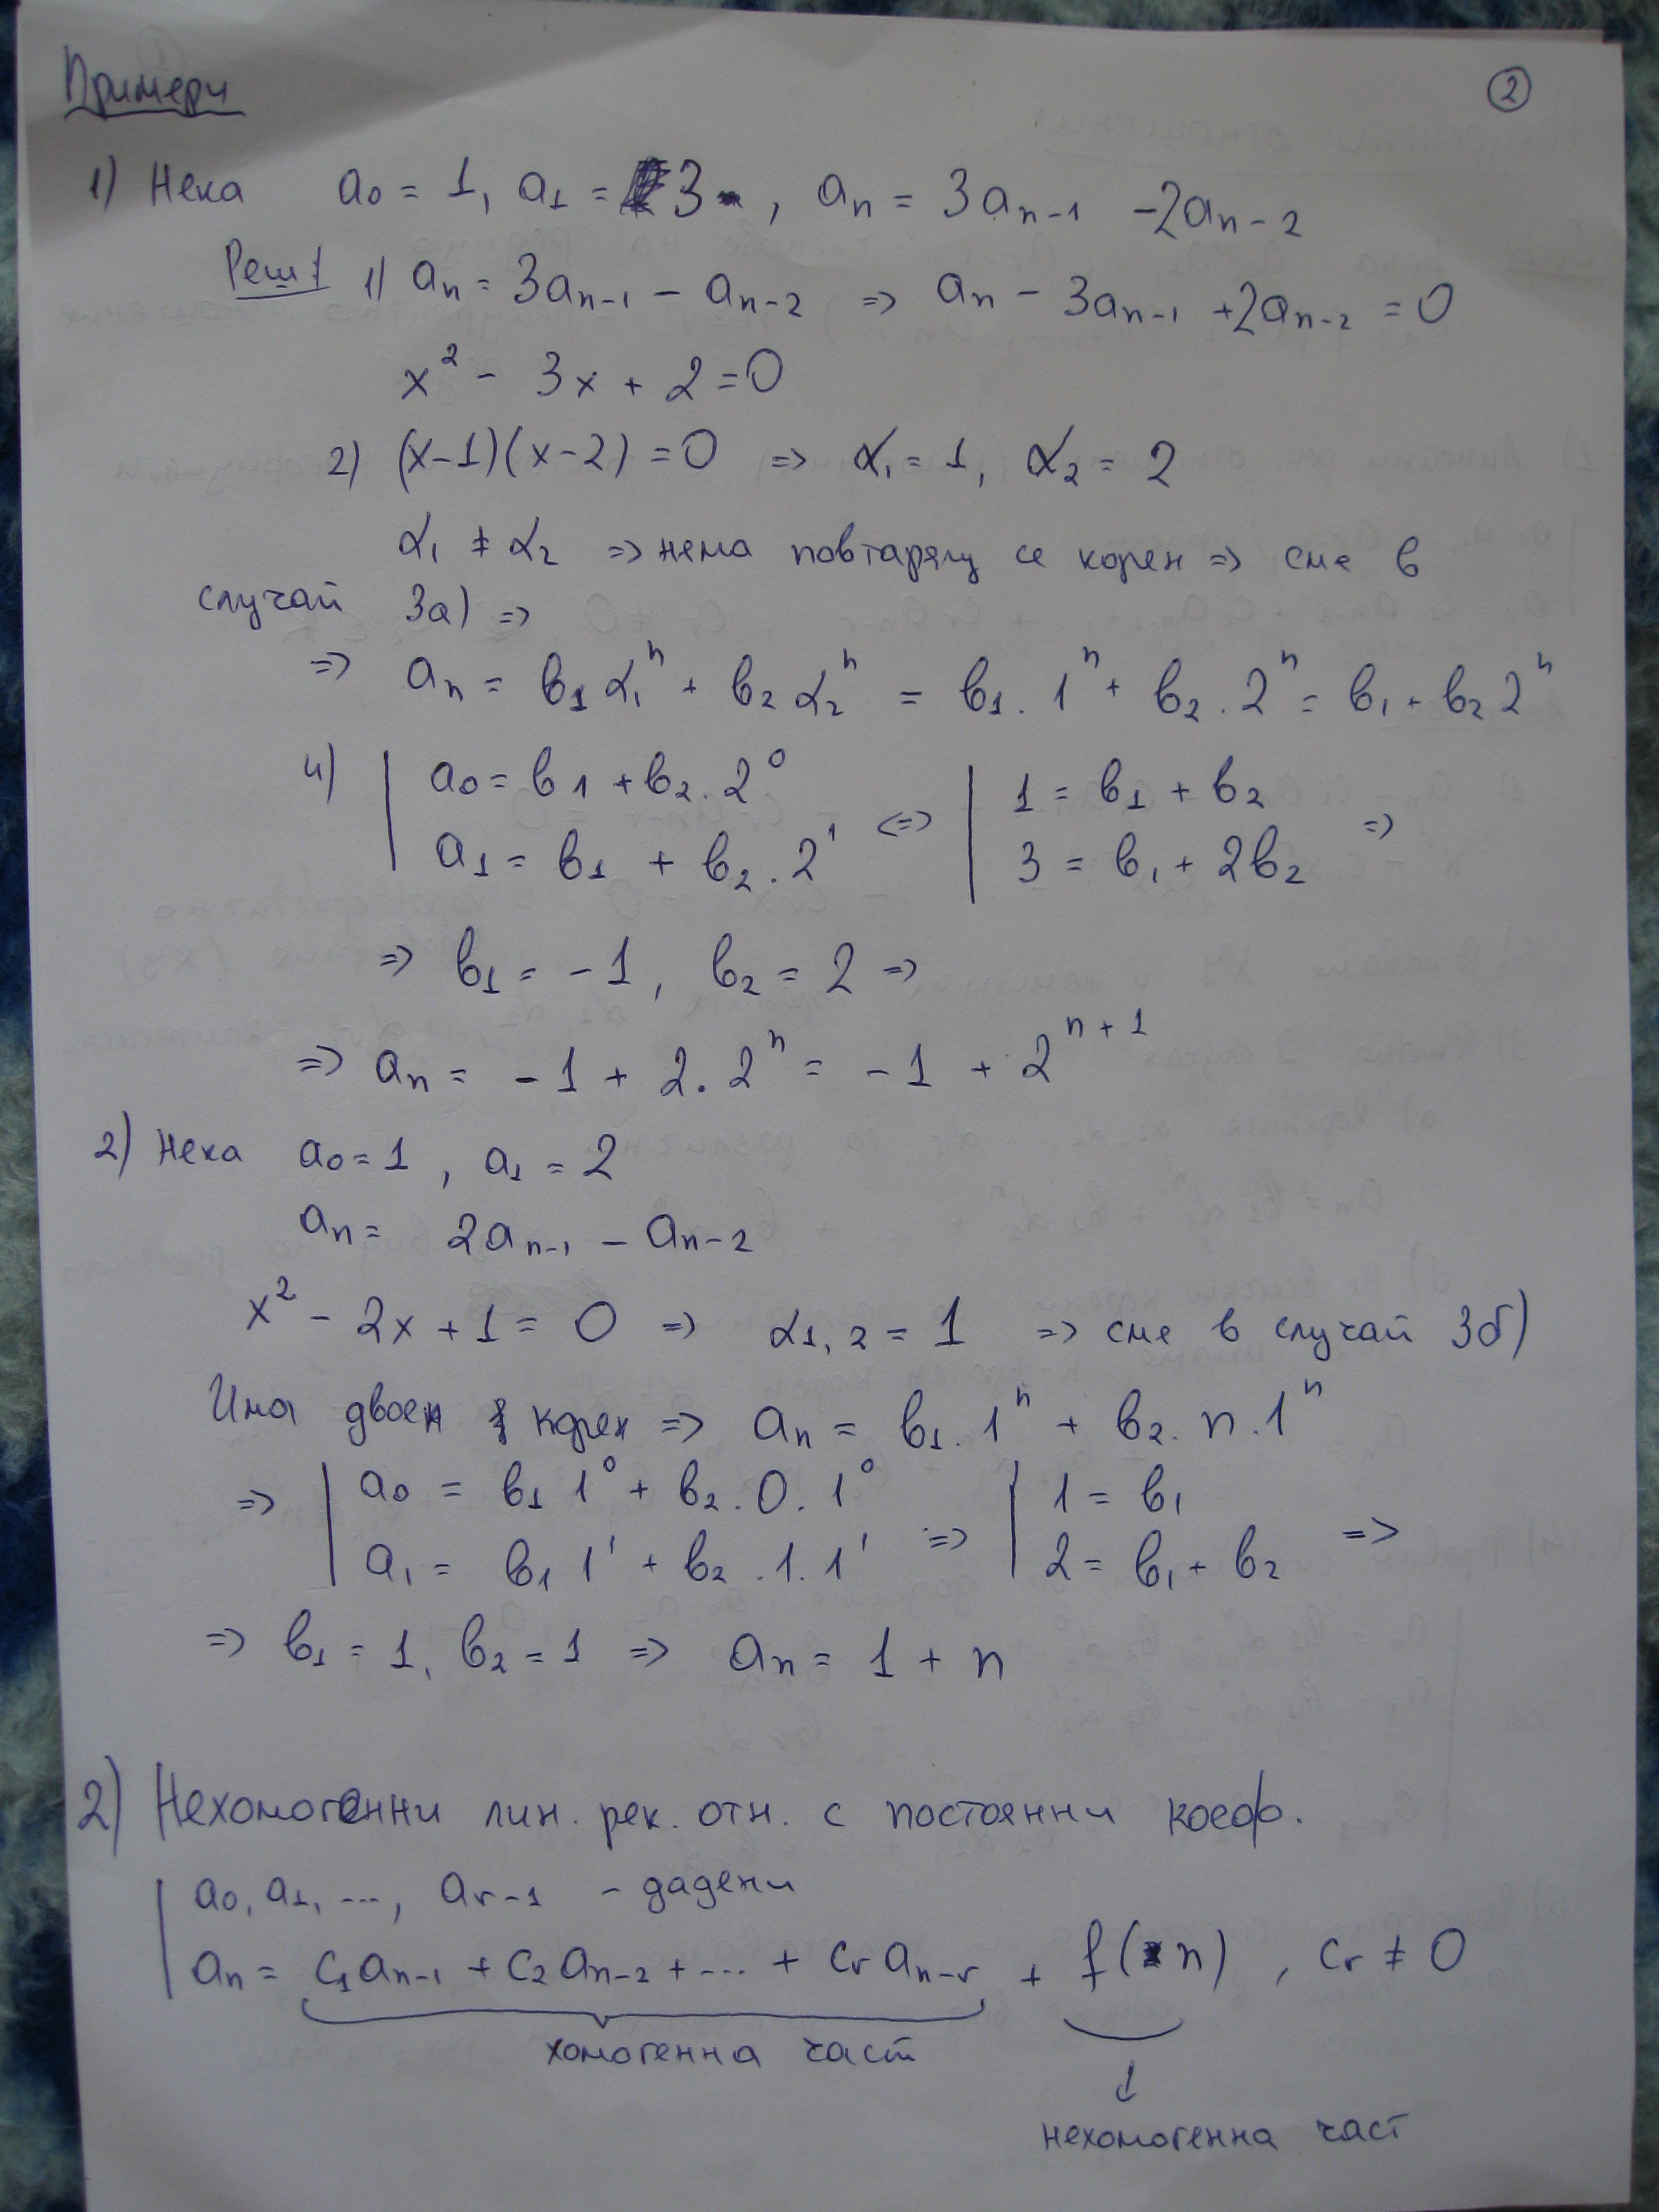 Примери
②
1) Нека a₀ = 1, a₁ = 3, aₙ = 3aₙ₋₁ - 2aₙ₋₂
Реш/ 1) aₙ = 3aₙ₋₁ - aₙ₋₂ => aₙ - 3aₙ₋₁ + 2aₙ₋₂ = 0
x² - 3x + 2 = 0
2) (x-1)(x-2) = 0 => α₁ = 1, α₂ = 2
α₁ ≠ α₂ => няма повтарящ се корен => сме в
случай 3а) =>
=> aₙ = в₁α₁ⁿ + в₂α₂ⁿ = в₁.1ⁿ + в₂.2ⁿ = в₁ + в₂2ⁿ
4) | a₀ = в₁ + в₂.2⁰ <=> | 1 = в₁ + в₂ =>
| a₁ = в₁ + в₂.2¹ | 3 = в₁ + 2в₂
=> в₁ = -1, в₂ = 2 =>
=> aₙ = -1 + 2.2ⁿ = -1 + 2ⁿ⁺¹
2) Нека a₀ = 1, a₁ = 2
aₙ = 2aₙ₋₁ - aₙ₋₂
x² - 2x + 1 = 0 => α₁,₂ = 1 => сме в случай 3б)
Има двоен корен => aₙ = в₁.1ⁿ + в₂.n.1ⁿ
=> | a₀ = в₁1⁰ + в₂.0.1⁰ => | 1 = в₁ =>
| a₁ = в₁1¹ + в₂.1.1¹ | 2 = в₁ + в₂
=> в₁ = 1, в₂ = 1 => aₙ = 1 + n
2) Нехомогенни лин. рек. отн. с постоянни коеф.
| a₀, a₁, ..., aᵣ₋₁ - дадени
| aₙ = c₁aₙ₋₁ + c₂aₙ₋₂ + ... + cᵣaₙ₋ᵣ + f(n), cᵣ ≠ 0
хомогенна част
нехомогенна част